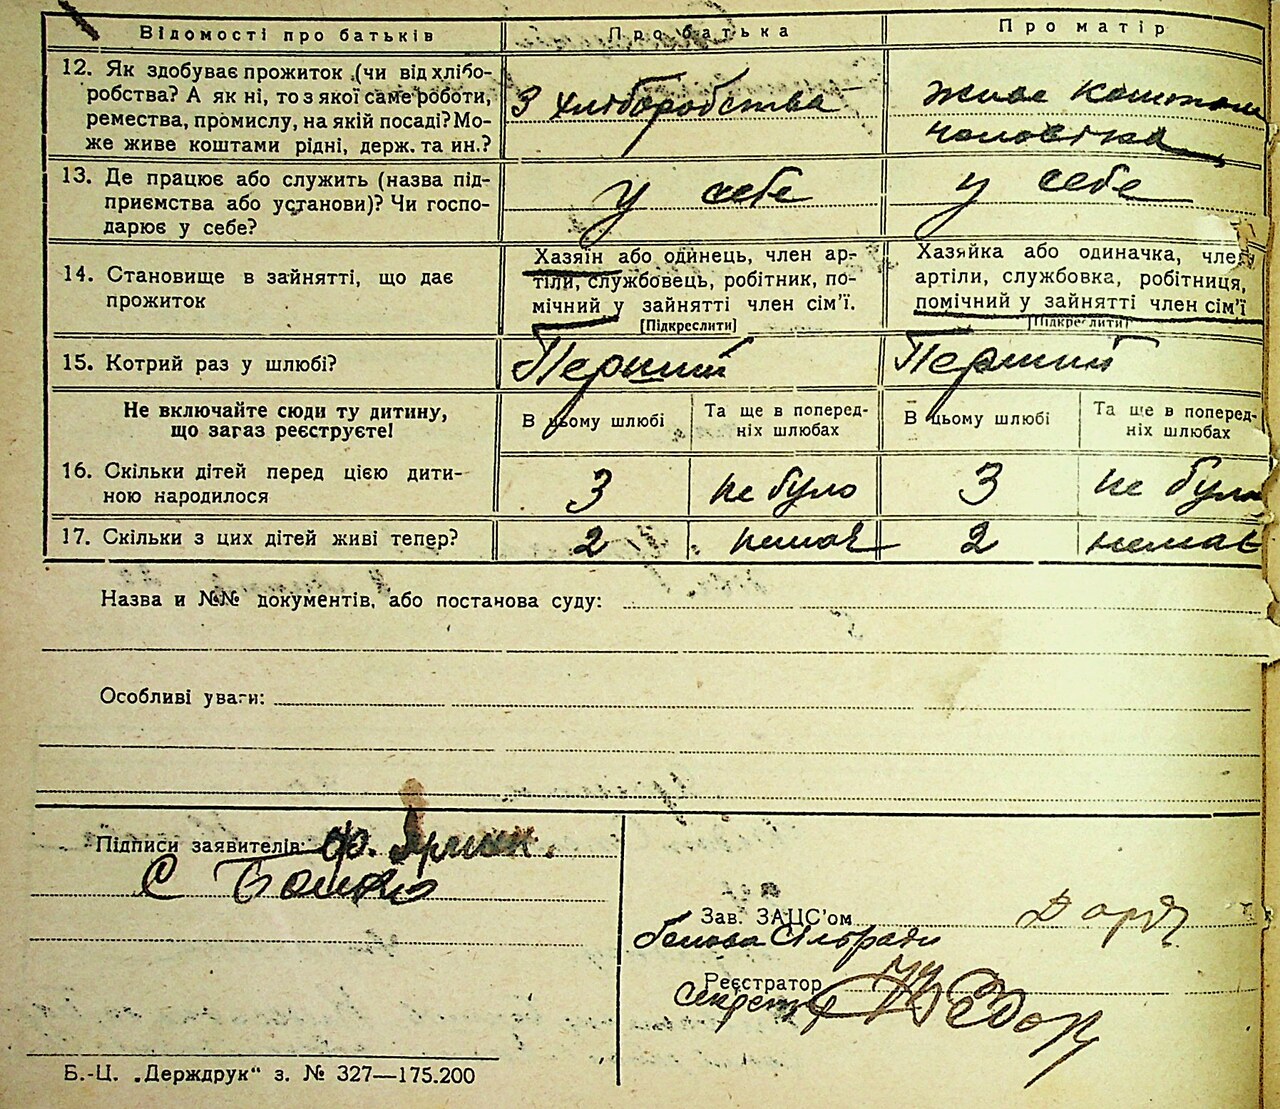 Відомості про батьків
Про батька
Про матір
12. Як здобуває прожиток (чи від хлібо-
робства? А як ні, то з якої саме роботи,
ремества, промислу, на якій посаді? Мо-
же живе коштами рідні, держ. та ин.?
З хліборобства
живе коштами
чоловіка
13. Де працює або служить (назва під-
приємства або установи)? Чи госпо-
дарює у себе?
у себе
у себе
14. Становище в зайнятті, що дає
прожиток
Хазяїн або одинець, член ар-
тіли, службовець, робітник, по-
мічний у зайнятті член сім'ї.
[Підкреслити]
Хазяйка або одиначка, член
артіли, службовка, робітниця,
помічний у зайнятті член сім'ї
[Підкреслити]
15. Котрий раз у шлюбі?
Перший
Перший
Не включайте сюди ту дитину,
що загаз реєструєте!
В цьому шлюбі
Та ще в поперед-
ніх шлюбах
В цьому шлюбі
Та ще в поперед-
ніх шлюбах
16. Скільки дітей перед цією дити-
ною народилося
3
не було
3
не було
17. Скільки з цих дітей живі тепер?
2
немає
2
немає
Назва и №№ документів, або постанова суду:
Особливі уваги:
Підписи заявителів:
С
Зав. ЗАЦС'ом
Голова Сільради
Реєстратор
Секретар
Б.-Ц. „Держдрук“ з. № 327—175.200